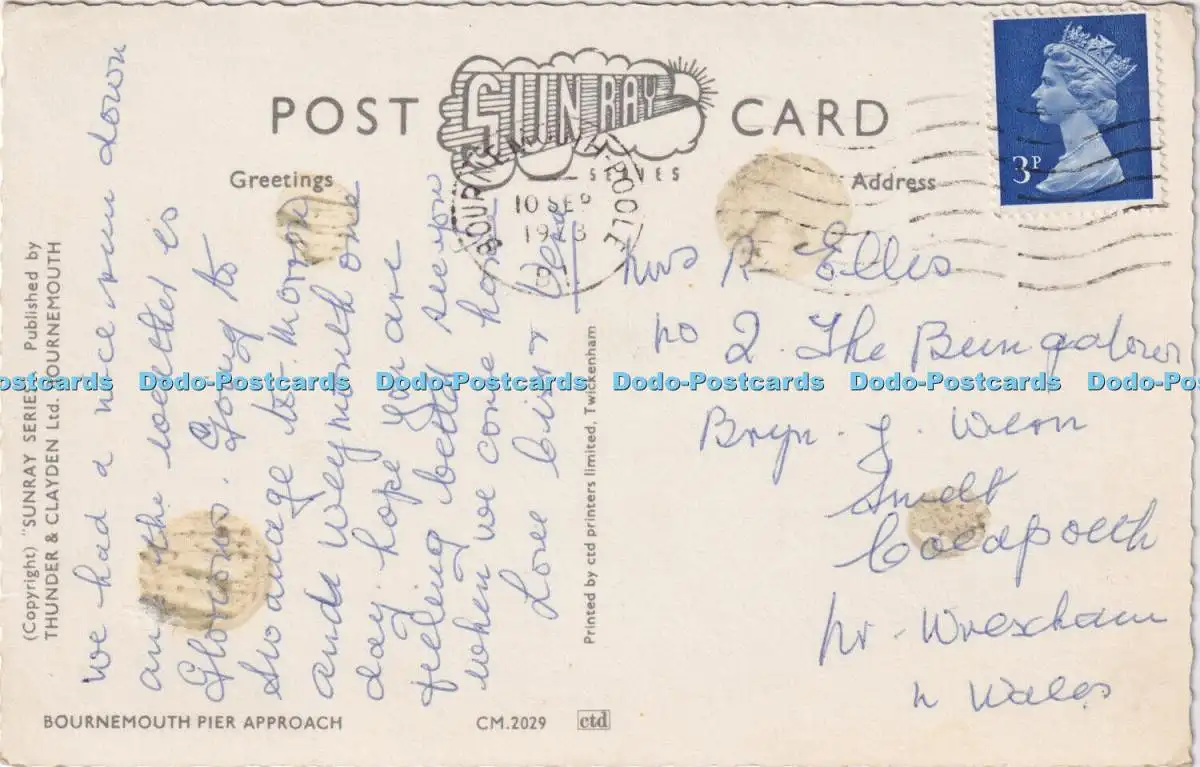 POST CARD
SUN RAY
SERIES
Greetings
Address
BOURNEMOUTH-POOLE
10 SEP
3P
(Copyright) "SUNRAY SERIES" Published by
THUNDER & CLAYDEN Ltd. BOURNEMOUTH
we had a nice run down
and the weather is
Glorious. Going to
Swanage to-morrow
and Weymouth one
day. hope you are
feeling better see you
when we come home
Love
Printed by ctd printers limited, Twickenham
Mrs R Ellis
No 2. The Bungalows
Bryn. y. Wern
Smelt
Coedpoeth
Nr. Wrexham
N Wales
BOURNEMOUTH PIER APPROACH
CM.2029
ctd
Dodo-Postcards Dodo-Postcards Dodo-Postcards Dodo-Postcards Dodo-Postcards Dodo-Postcards